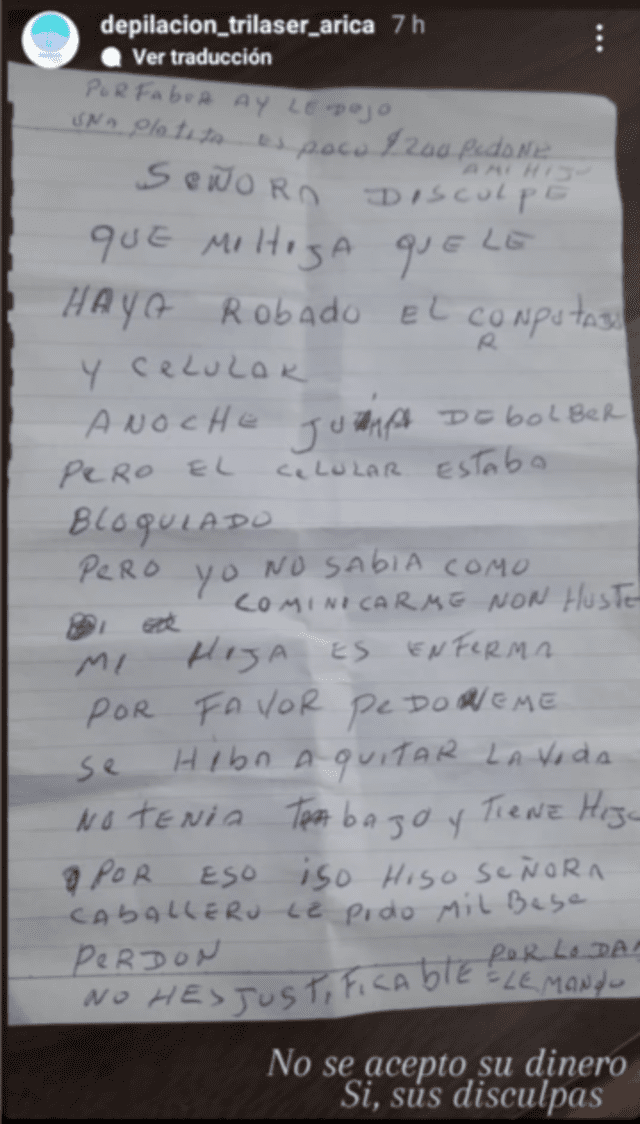 depilacion_trilaser_arica 7 h
Ver traducción
PORFABOR AY LE DOJO
UNA PlatitA ES POCO $200 PEDONE
A MI HIJO
SEÑORA DISCULPE
QUE MI HIJA QUE LE
HAYA ROBADO EL CONPUTADO
R
Y CELULAR
ANOCHE DEBOLBER
PERO EL CELULAR ESTABA
BLOQUIADO
PERO YO NO SABIA COMO
COMINICARME NON HUSTE
MI HIJA ES ENFERMA
POR FAVOR PEDONEME
SE HIBA A QUITAR LA VIDA
NO TENIA TRABAJO Y TIENE HIJO
POR ESO ISO HISO SEÑORA
CABALLERO LE PIDO MIL BESE
PERDON POR LO DA
NO HES JUSTIFICABLE LE MANDO
No se acepto su dinero
Si, sus disculpas